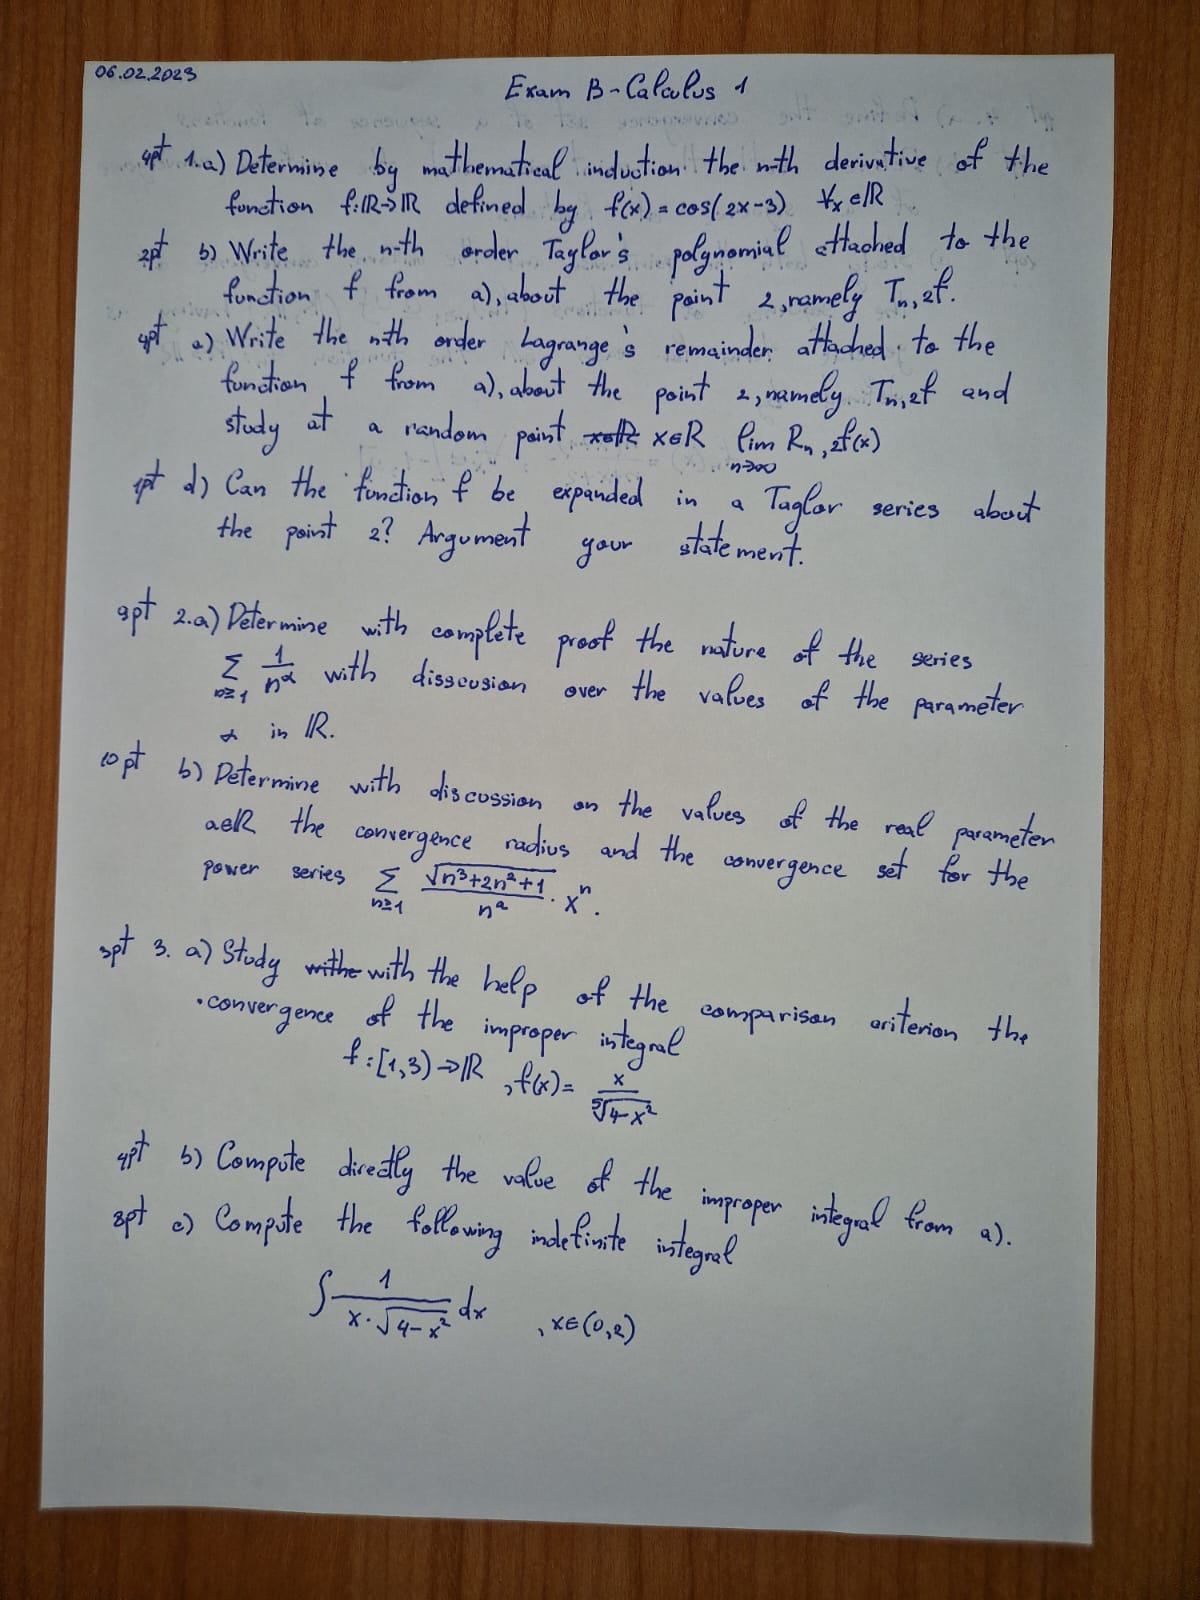 06.02.2023
Exam B-Calculus 1
4pt 1.a) Determine by mathematical induction the n-th derivative of the
function f:ℝ→ℝ defined by f(x) = cos(2x-3) ∀x∈ℝ
2pt b) Write the n-th order Taylor's polynomial attached to the
function f from a), about the point 2, namely Tn,2f.
4pt c) Write the nth order Lagrange's remainder attached to the
function f from a), about the point 2, namely Tn,2f and
study at a random point x∈ℝ x∈R lim n→∞ Rn,2f(x)
1pt d) Can the function f be expanded in a Taylor series about
the point 2? Argument your statement.
9pt 2.a) Determine with complete proof the nature of the series
∑ n≥1 1/n^α with disscusion over the values of the parameter
α in ℝ.
10pt b) Determine with discussion on the values of the real parameter
a∈ℝ the convergence radius and the convergence set for the
power series ∑ n≥1 √(n³+2n²+1)/n^a · x^n.
3pt 3. a) Study withe with the help of the comparison criterion the
convergence of the improper integral
f:[1,3)→ℝ, f(x)= x/⁵√(4-x²)
4pt b) Compute directly the value of the improper integral from a).
8pt c) Compute the following indefinite integral
∫ 1/(x·√(4-x²)) dx , x∈(0,2)